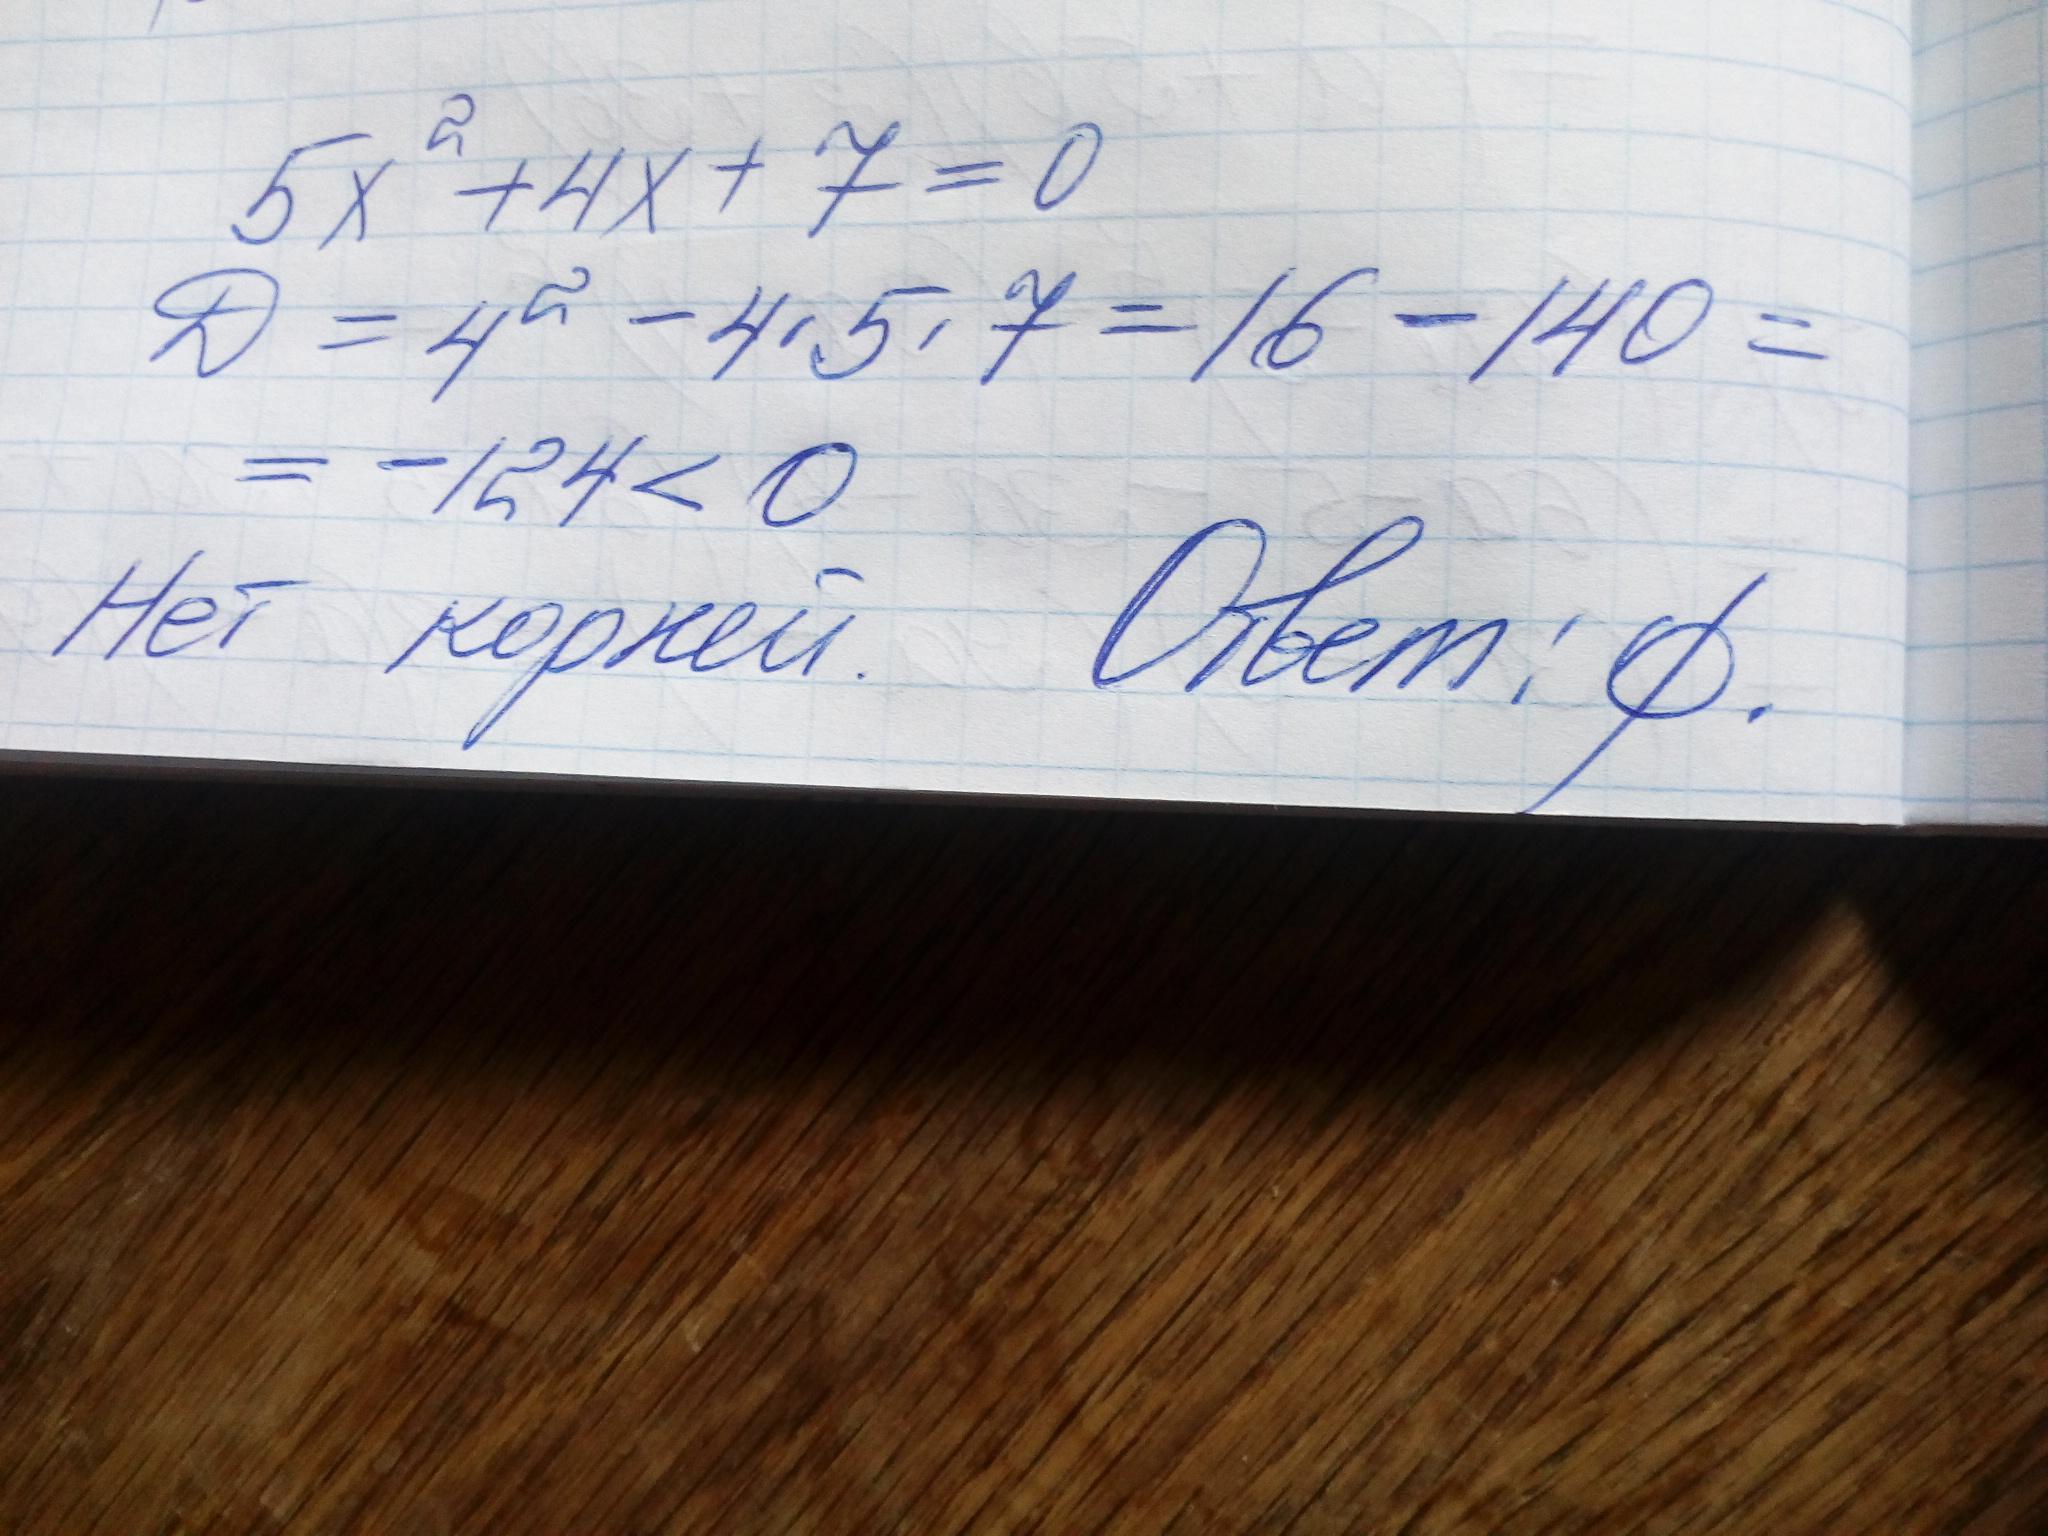 5x² + 4x + 7 = 0
D = 4² - 4·5·7 = 16 - 140 =
= -124 < 0
Нет корней. Ответ: ∅.